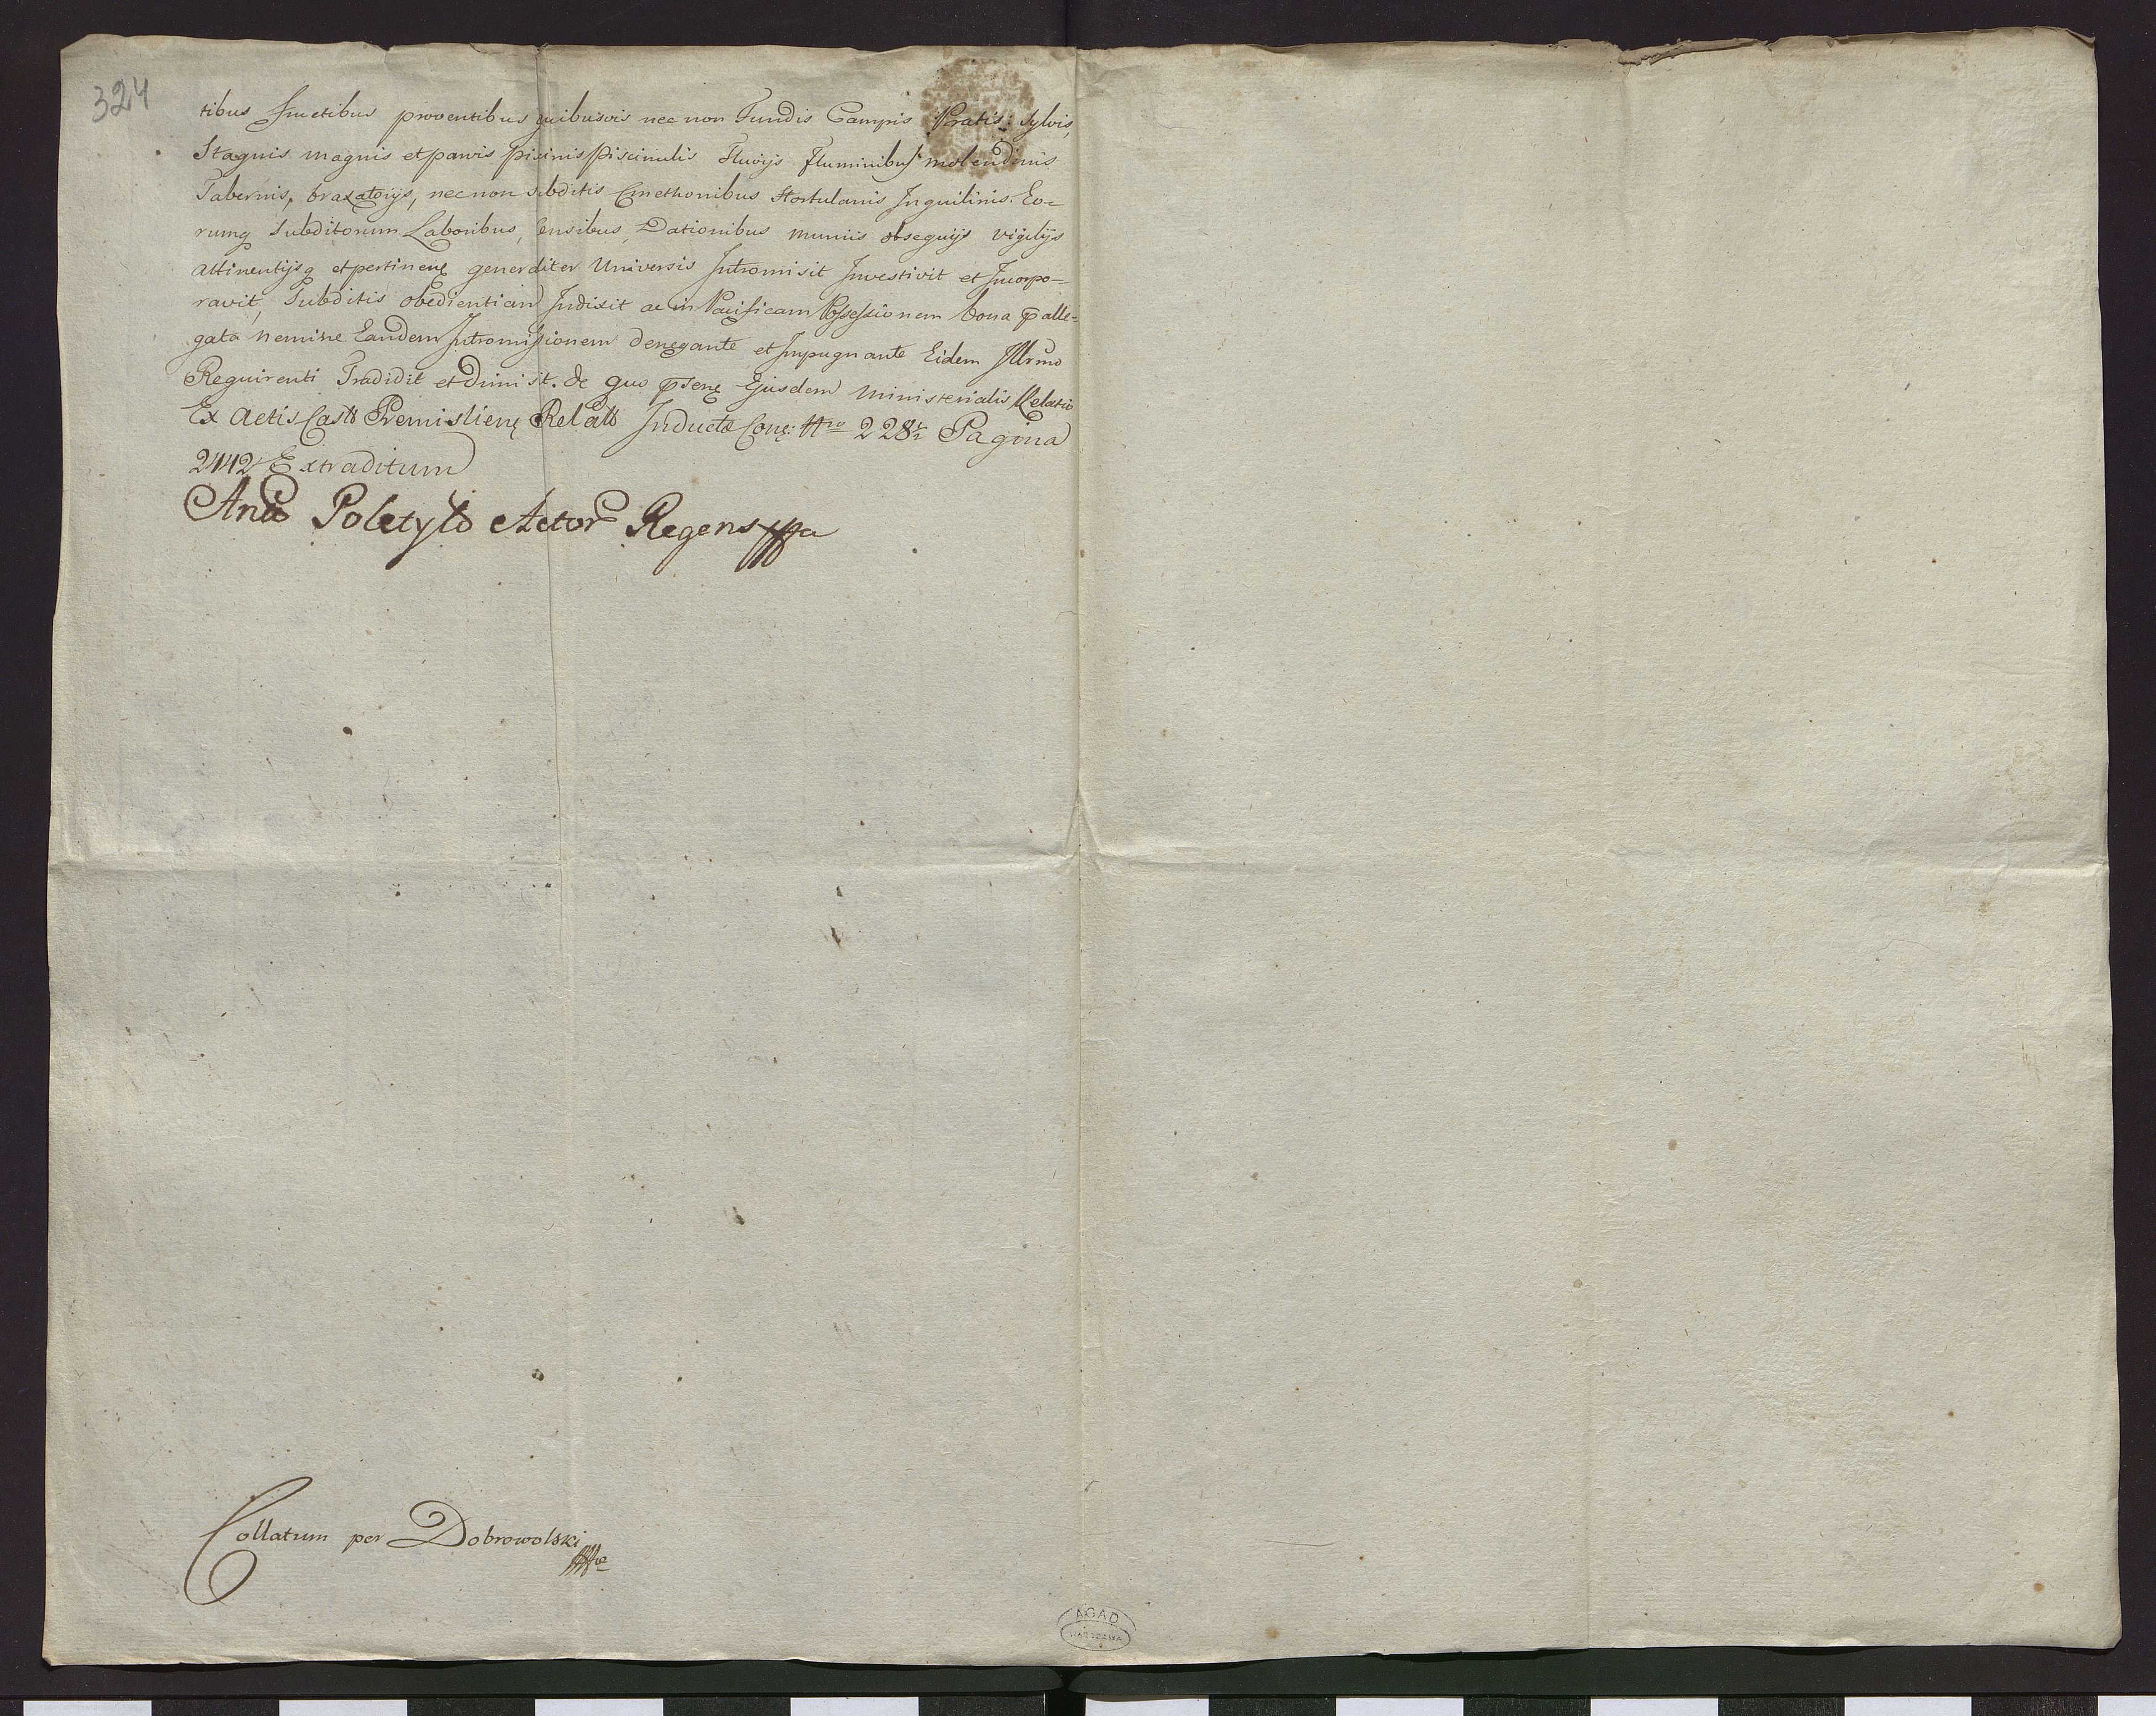 324
tibus fructibus proventibus quibusvis nec non Fundis Campis Pratis; Sylvis,
Stagnis magnis et parvis piscinis piscinulis Fluvijs Fluminibusq molendinis
Tabernis, braxatorijs, nec non subditis Cmethonibus Hortulanis Inquilinis. Eo-
rumq Subditorum Laboribus, Censibus, Dationibus muniis obsequijs vigilijs
attinentijsq et pertinenę generaliter Universis Intromisit Investivit et Incorpo-
ravit, Subditis obedientiam Indixit ac in Pacificam Possessionem bona p̄alle-
gata nemine Eandem Intromissionem denegante et Impugnante Eidem Illrmo
Requirenti Tradidit et Dimisit. de quo p̄senę Ejusdem ministerialis Relatio
Ex Actis Castr Premislienę Relatt Inductę Conę: Nro 228 Pagina
2442 Extraditum
Poletyło Actor Regens
Collatum per Dobrowolski
AGAD
WARSZAWA